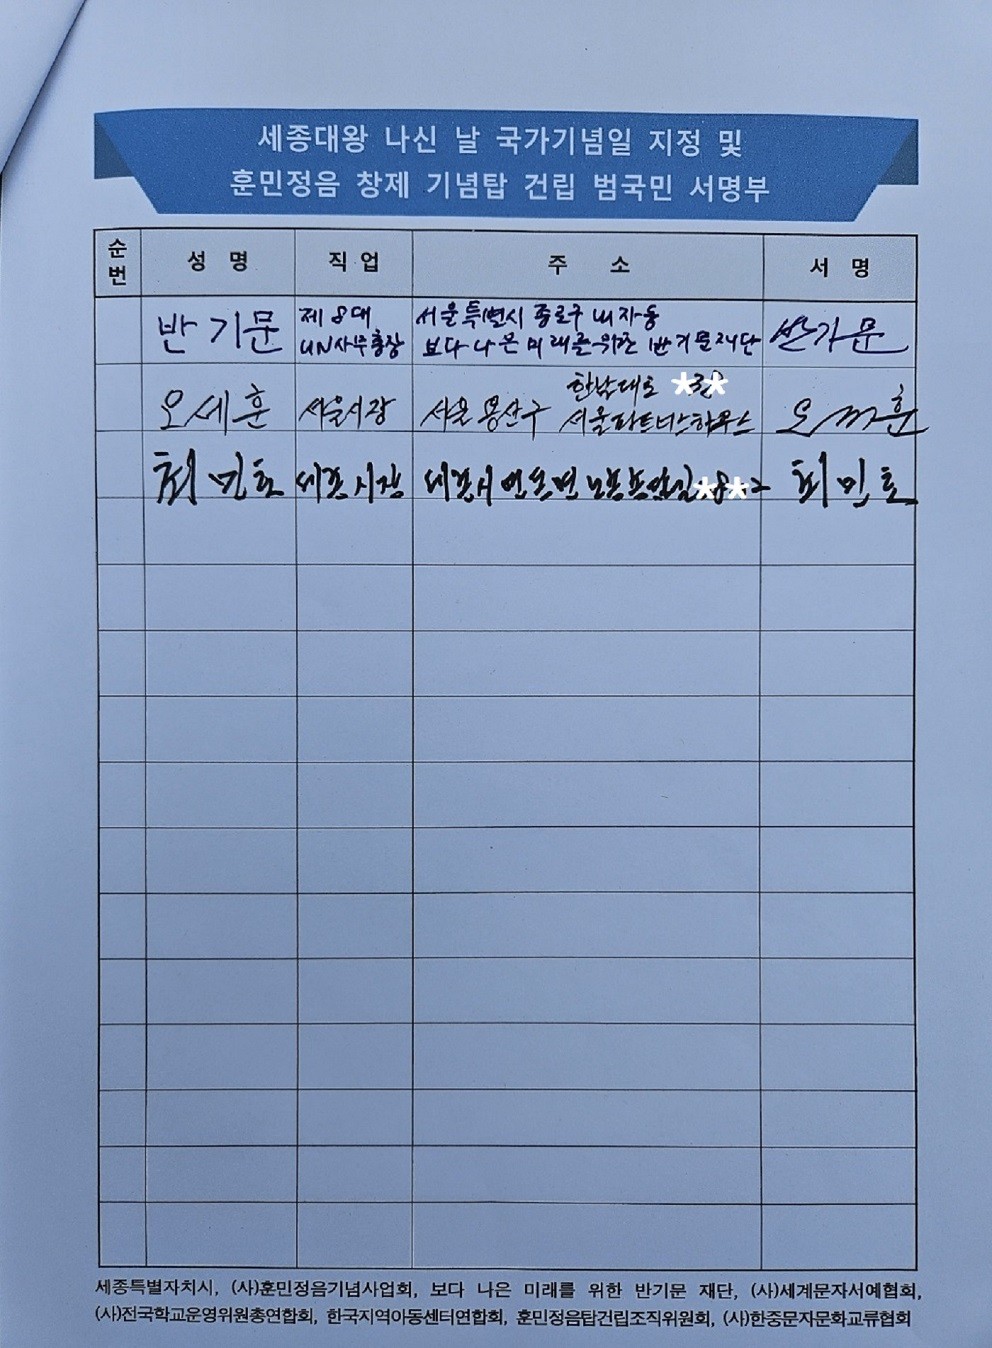 세종대왕 나신 날 국가기념일 지정 및
훈민정음 창제 기념탑 건립 범국민 서명부
순번 성 명 직 업 주 소 서 명
반기문 제8대 UN사무총장 서울특별시 종로구 내자동 반기문
보다 나은 미래를 위한 반기문 재단
한남대로
오세훈 서울시장 서울 용산구 서울파트너스하우스 오세훈
최민호 세종시장 세종시 연서면 최민호
세종특별자치시, (사)훈민정음기념사업회, 보다 나은 미래를 위한 반기문 재단, (사)세계문자서예협회,
(사)전국학교운영위원총연합회, 한국지역아동센터연합회, 훈민정음탑건립조직위원회, (사)한중문자문화교류협회